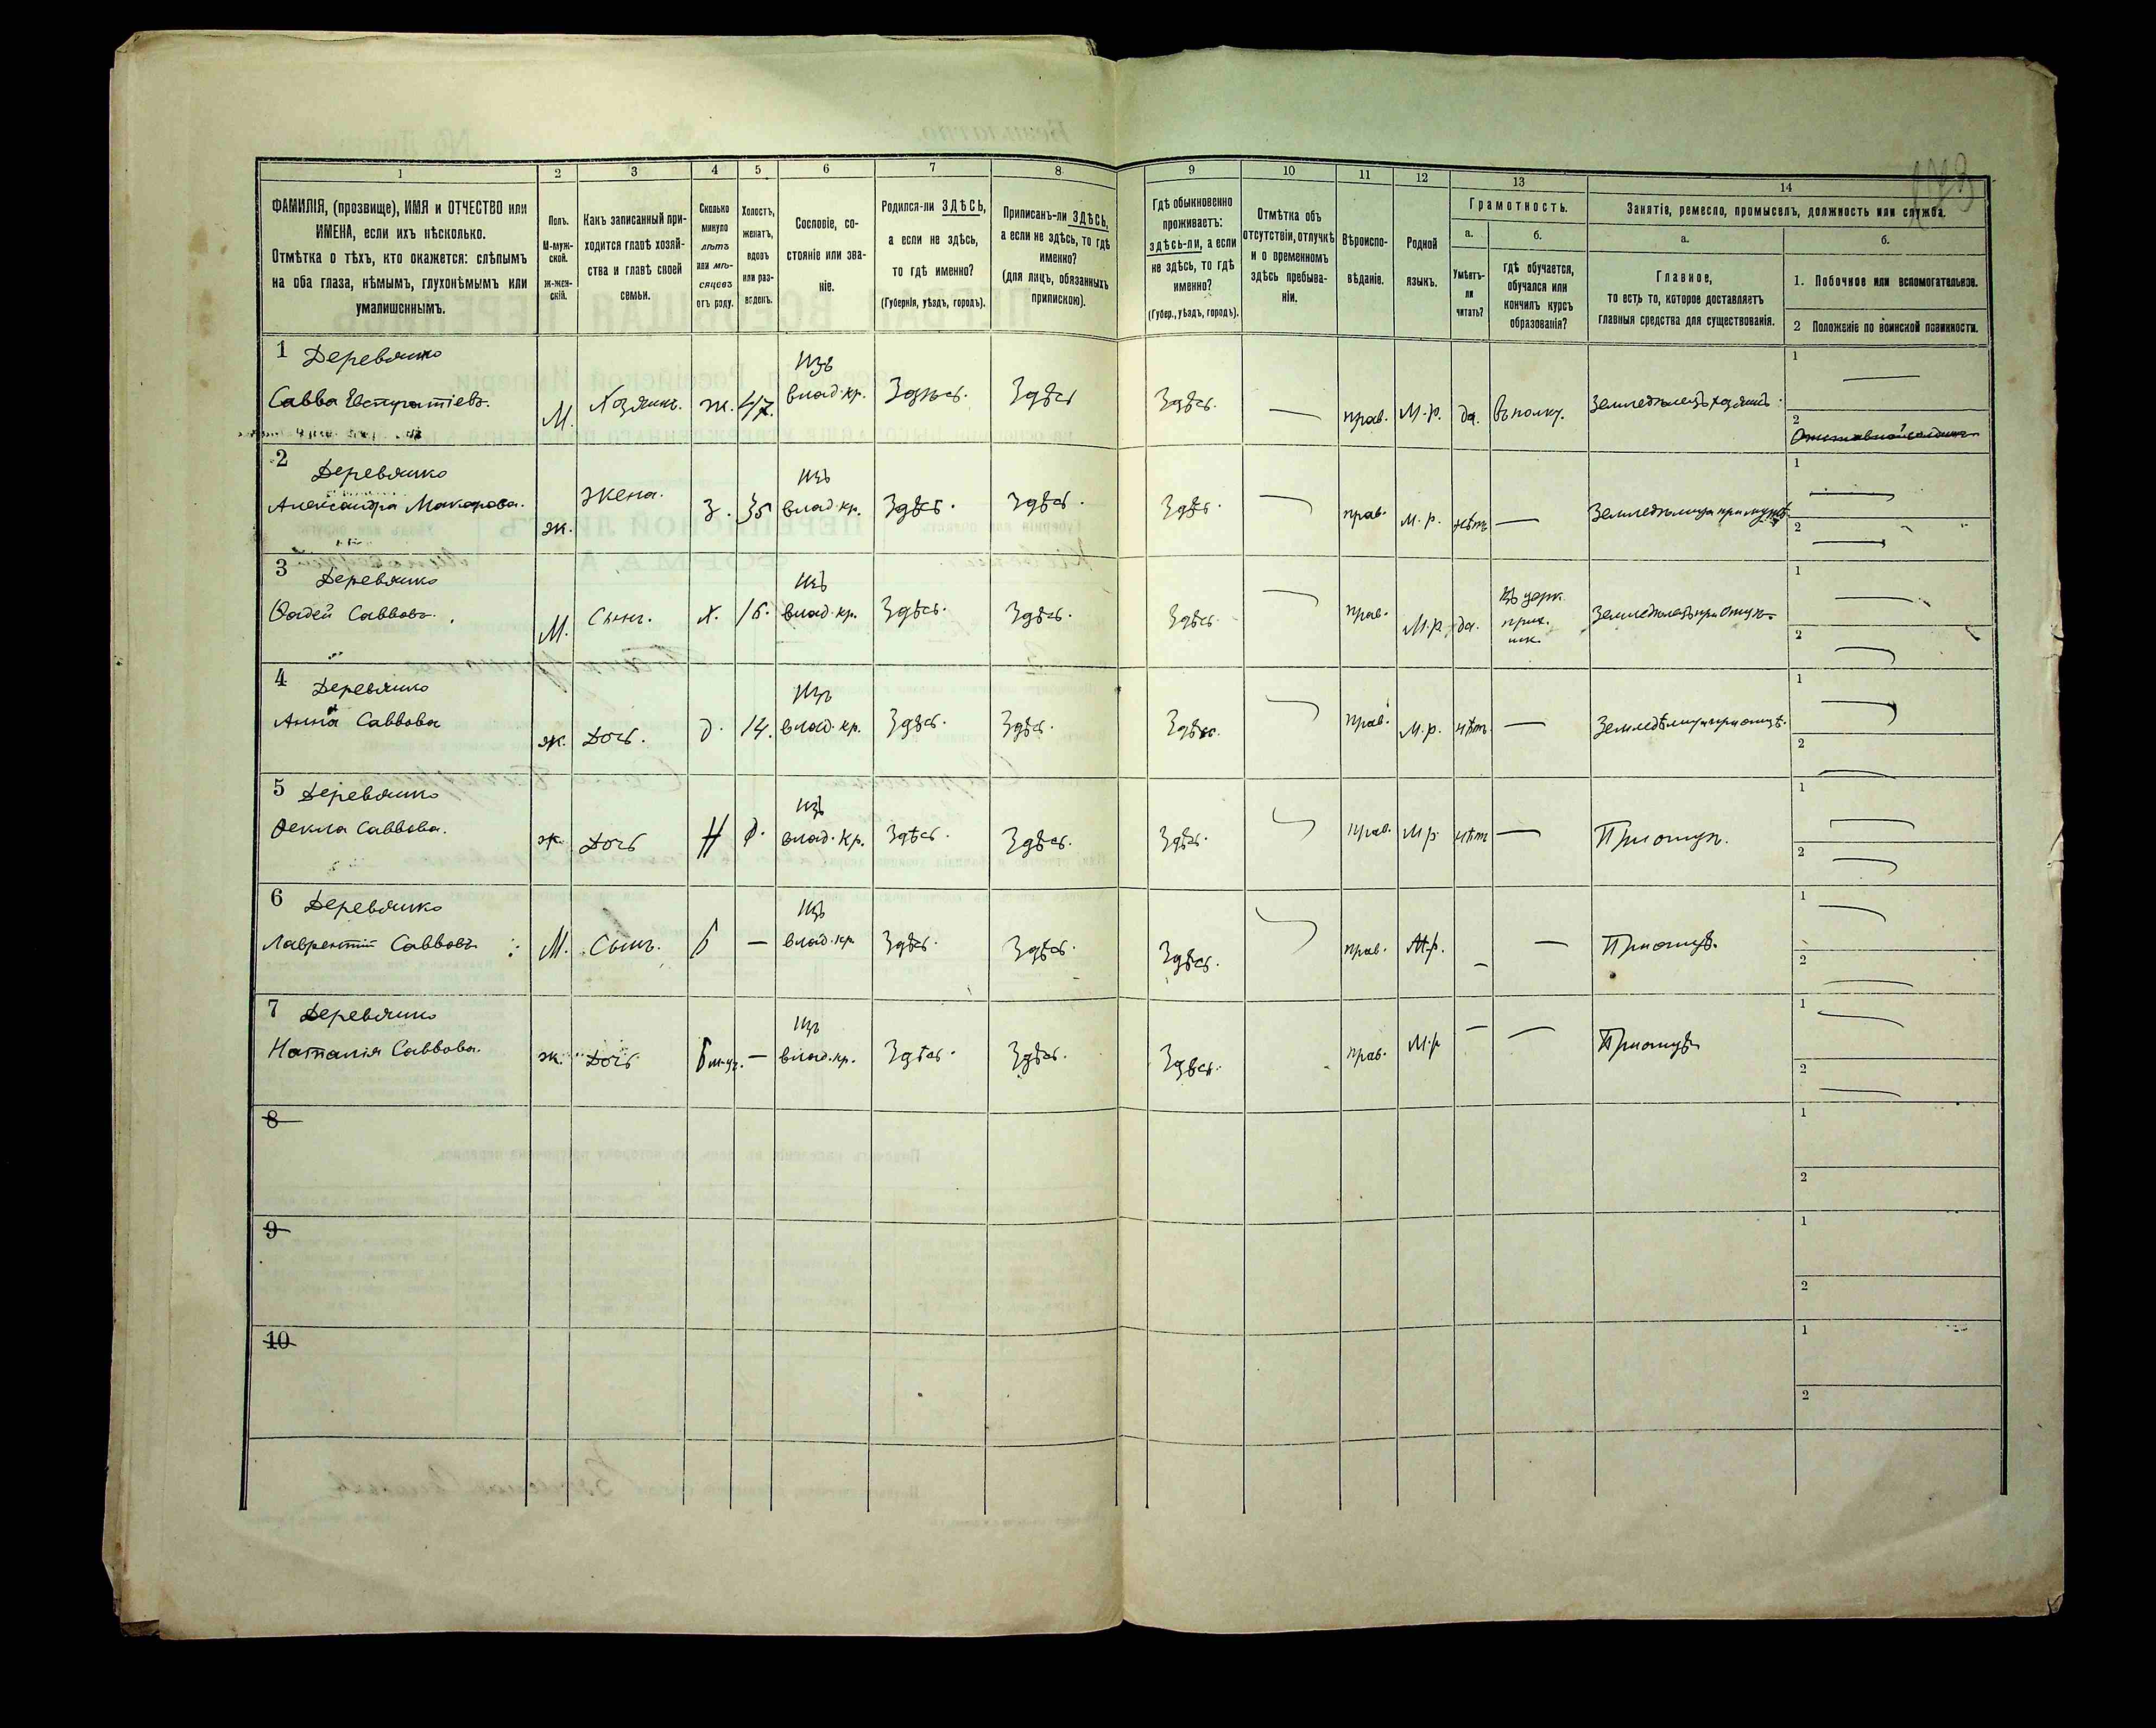 173
1 2 3 4 5 6 7 8 9 10 11 12 13 14
ФАМИЛІЯ, (прозвище), ИМЯ и ОТЧЕСТВО или
ИМЕНА, если ихъ нѣсколько.
Отмѣтка о тѣхъ, кто окажется: слѣпымъ
на оба глаза, нѣмымъ, глухонѣмымъ или
умалишеннымъ.
Полъ.
М-муж-
ской.
Ж-жен-
скій.
Какъ записанный при-
ходится главѣ хозяй-
ства и главѣ своей
семьи.
Сколько
минуло
лѣтъ
или мѣ-
сяцевъ
отъ роду.
Холостъ,
женатъ,
вдовъ
или раз-
веденъ.
Сословіе, со-
стояніе или зва-
ніе.
Родился-ли ЗДѢСЬ,
а если не здѣсь,
то гдѣ именно?
(Губернія, уѣздъ, городъ).
Приписанъ-ли ЗДѢСЬ,
а если не здѣсь, то гдѣ
именно?
(для лицъ, обязанныхъ
припискою).
Гдѣ обыкновенно
проживаетъ:
здѣсь-ли, а если
не здѣсь, то гдѣ
именно?
(Губер., уѣздъ, городъ).
Отмѣтка объ
отсутствіи, отлучкѣ
и о временномъ
здѣсь пребыва-
ніи.
Вѣроиспо-
вѣданіе.
Родной
языкъ.
Грамотность.
а.
Умѣетъ-
ли
читать?
б.
гдѣ обучается,
обучался или
кончилъ курсъ
образованія?
Занятія, ремесло, промыселъ, должность или служба.
а.
Главное,
то есть то, которое доставляетъ
главныя средства для существованія.
б.
1. Побочное или вспомогательное.
2 Положеніе по воинской повинности.
1 Деревянко Изъ 1
Савва Евстратіевъ. М. Хозяинъ. Ж. 47. влад. кр. Здѣсь. Здѣсь Здѣсь. — прав. М.р. да. Въ полку. Земледѣлецъ хозяинъ. —
2
Отставной солдатъ
2 Деревянко Изъ 1
Александра Макарова. ж. Жена. З. 35 влад. кр. Здѣсь. Здѣсь. Здѣсь. — прав. М.р. нѣтъ — Земледѣлица при мужѣ —
2 —
3 Деревянко Изъ 1
Ѳадей Саввовъ. М. Сынъ. Х. 16. влад. кр. Здѣсь. Здѣсь. Здѣсь. — прав. М.р. да. Въ церк. Земледѣлецъ при отцѣ. —
прих.
шк.
2 —
4 Деревянко Изъ 1
Анна Саввова ж. Дочь. д. 14. влад. кр. Здѣсь. Здѣсь. Здѣсь. — прав. М.р. нѣтъ — Земледѣлица при отцѣ. —
2 —
5 Деревянко Изъ 1
Ѳекла Саввова. ж. Дочь д. влад. кр. Здѣсь. Здѣсь. Здѣсь. — прав. М.р. нѣтъ — При отцѣ. —
2 —
6 Деревянко Изъ 1
Лаврентій Саввовъ М. Сынъ. — влад. кр. Здѣсь. Здѣсь. Здѣсь. — прав. М.р. — — При отцѣ. —
2 —
7 Деревянко Изъ 1
Наталія Саввова. ж. Дочь — влад. кр. Здѣсь. Здѣсь. Здѣсь. прав. М.р — — При отцѣ. —
2 —
8 1
2
9 1
2
10 1
2